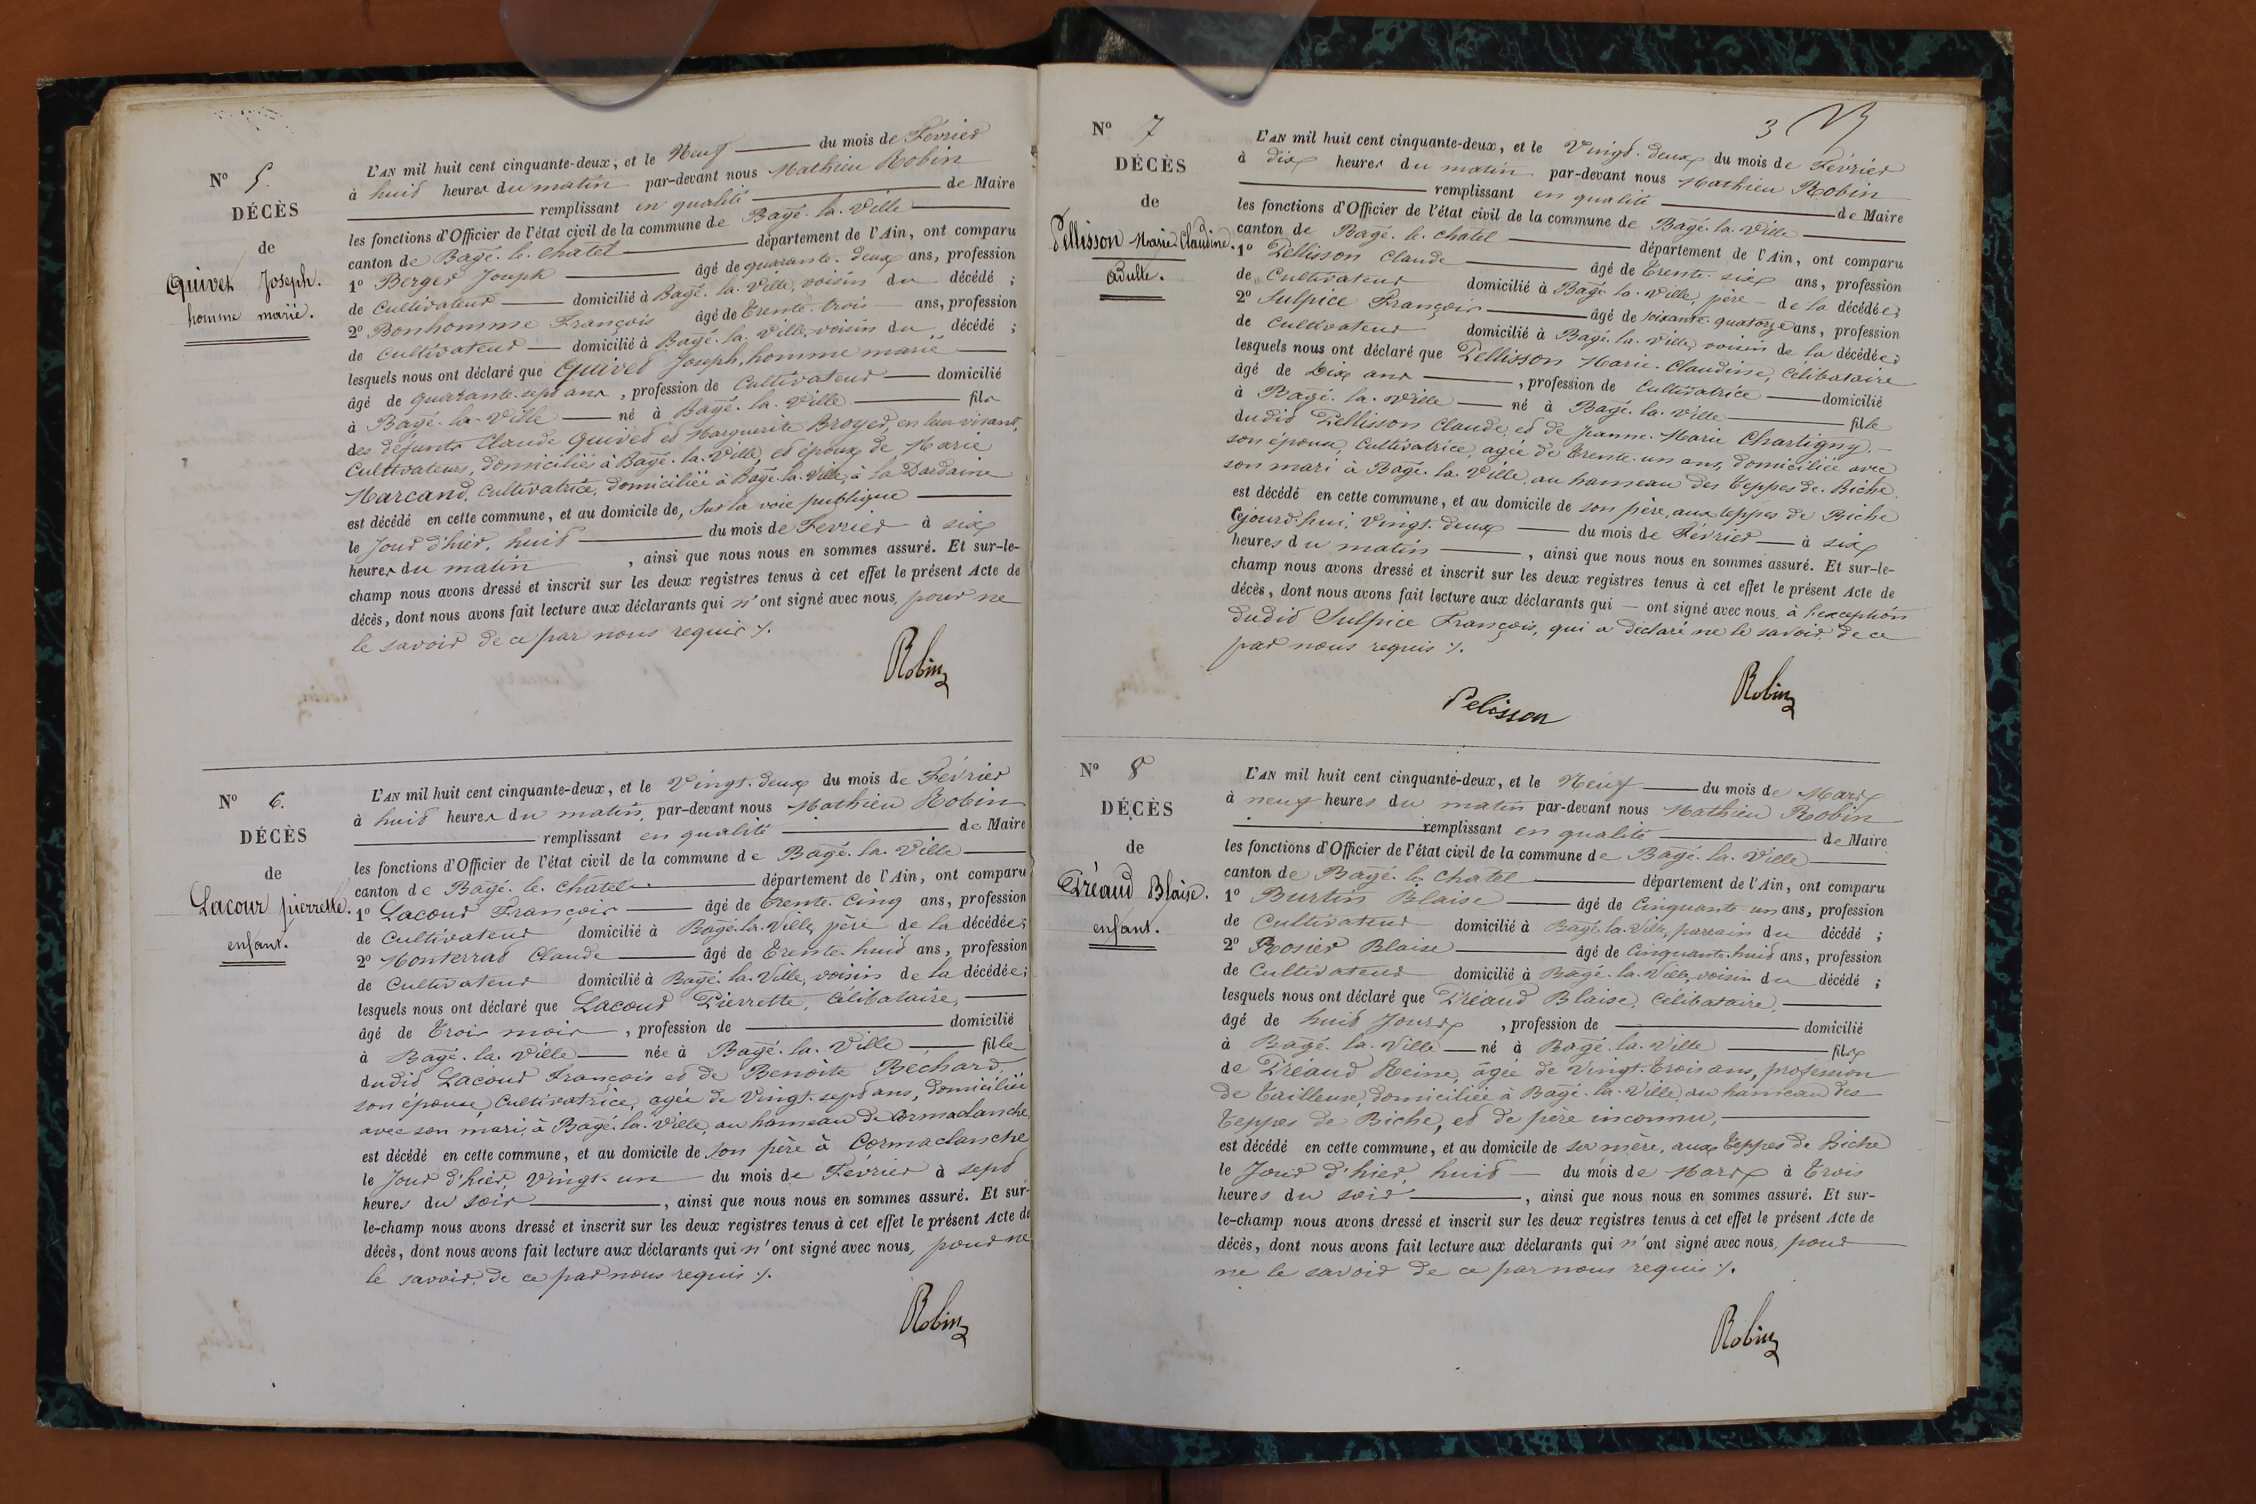 N° 5.
DÉCÈS
de
Quivet Joseph.
homme marié.
L'AN mil huit cent cinquante-deux, et le Neuf du mois de Février
à huit heures du matin par-devant nous Mathieu Robin
remplissant en qualité de Maire
les fonctions d'Officier de l'état civil de la commune de Bagé-la-Ville
canton de Bagé-le-Chatel département de l'Ain, ont comparu
1° Berger Joseph âgé de quarante-deux ans, profession
de Cultivateur domicilié à Bagé-la-Ville, voisin du décédé ;
2° Bonhomme François âgé de trente-trois ans, profession
de Cultivateur domicilié à Bagé-la-Ville, voisin du décédé ;
lesquels nous ont déclaré que Quivet Joseph, homme marié
âgé de quarante-sept ans, profession de Cultivateur domicilié
à Bagé-la-Ville né à Bagé-la-Ville fils
des défunts Claude Quivet et Marguerite Broyer, en leur vivant,
Cultivateurs, domiciliés à Bagé-la-Ville, et époux de Marie
Marcand, Cultivatrice, domiciliée à Bagé-la-Ville, à la Dardaine
est décédé en cette commune, et au domicile de, sur la voie publique
le Jour d'hier, huit du mois de Fevrier à six
heures du matin, ainsi que nous nous en sommes assuré. Et sur-le-
champ nous avons dressé et inscrit sur les deux registres tenus à cet effet le présent Acte de
décès, dont nous avons fait lecture aux déclarants qui n'ont signé avec nous, pour ne
le savoir de ce par nous requis ./.
Robin
N° 6.
DÉCÈS
de
Lacour pierrette.
enfant.
L'AN mil huit cent cinquante-deux, et le Vingt-deux du mois de Février
à huit heures du matin, par-devant nous Mathieu Robin
remplissant en qualité de Maire
les fonctions d'Officier de l'état civil de la commune de Bagé-la-Ville
canton de Bagé-le-Châtel département de l'Ain, ont comparu
1° Lacour François âgé de trente-cinq ans, profession
de Cultivateur domicilié à Bagé-la-Ville, père de la décédée ;
2° Monterrat Claude âgé de trente-huit ans, profession
de Cultivateur domicilié à Bagé-la-Ville, voisin de la décédée ;
lesquels nous ont déclaré que Lacour Pierrette, célibataire,
âgé de trois mois, profession de domicilié
à Bagé-la-Ville née à Bagé-la-Ville fille
dudit Lacour François et de Benoite Bechard,
son épouse, Cultivatrice, agée de vingt-sept ans, domiciliée
avec son mari, à Bagé-la-Ville, au hameau de Cormaclanche
est décédé en cette commune, et au domicile de son père à Cormaclanche
le Jour d'hier, vingt-un du mois de Février à sept
heures du soir, ainsi que nous nous en sommes assuré. Et sur-
le-champ nous avons dressé et inscrit sur les deux registres tenus à cet effet le présent Acte de
décès, dont nous avons fait lecture aux déclarants qui n'ont signé avec nous, pour ne
le savoir, de ce par nous requis ./.
Robin
3
N° 7
DÉCÈS
de
Pellisson Marie Claudine.
adulte.
L'AN mil huit cent cinquante-deux, et le Vingt-deux du mois de Février
à dix heures du matin par-devant nous Mathieu Robin
remplissant en qualité de Maire
les fonctions d'Officier de l'état civil de la commune de Bagé-la-Ville
canton de Bagé-le-Chatel département de l'Ain, ont comparu
1° Pellisson Claude âgé de trente-six ans, profession
de Cultivateur domicilié à Bagé-la-Ville, père de la décédée ;
2° Sulpice François âgé de soixante-quatorze ans, profession
de Cultivateur domicilié à Bagé-la-Ville, voisin de la décédée ;
lesquels nous ont déclaré que Pellisson Marie-Claudine, célibataire
âgé de Dix ans, profession de Cultivatrice domicilié
à Bagé-la-Ville né à Bagé-la-Ville fille
dudit Pellisson Claude, et de Jeanne-Marie Chartigny,
son épouse, Cultivatrice, agée de trente-un ans, domiciliée avec
son mari à Bagé-la-Ville, au hameau des Teppes de Biche
est décédé en cette commune, et au domicile de son père, aux teppes de Biche
Cejourd'hui, vingt-deux du mois de Février à six
heures du matin, ainsi que nous nous en sommes assuré. Et sur-le-
champ nous avons dressé et inscrit sur les deux registres tenus à cet effet le présent Acte de
décès, dont nous avons fait lecture aux déclarants qui ont signé avec nous, à l'exception
dudit Sulpice François, qui a déclaré ne le savoir de ce
par nous requis ./.
Pelisson
Robin
N° 8
DÉCÈS
de
Préaud Blaise.
enfant.
L'AN mil huit cent cinquante-deux, et le Neuf du mois de Mars
à neuf heures du matin par-devant nous Mathieu Robin
remplissant en qualité de Maire
les fonctions d'Officier de l'état civil de la commune de Bagé-la-Ville
canton de Bagé-le-Chatel département de l'Ain, ont comparu
1° Burtin Blaise âgé de Cinquante-un ans, profession
de Cultivateur domicilié à Bagé-la-Ville, parrain du décédé ;
2° Rosier Blaise âgé de Cinquante-huit ans, profession
de Cultivateur domicilié à Bagé-la-Ville, voisin du décédé ;
lesquels nous ont déclaré que Préaud Blaise, célibataire,
âgé de huit Jours, profession de domicilié
à Bagé-la-Ville né à Bagé-la-Ville fils
de Préaud Reine, âgée de vingt-trois ans, profession
de tailleuse, domiciliée à Bagé-la-Ville, au hameau des
teppes de Biche, et de père inconnu,
est décédé en cette commune, et au domicile de sa mère, aux teppes de Biche
le Jour d'hier, huit du mois de Mars à trois
heures du soir, ainsi que nous nous en sommes assuré. Et sur-
le-champ nous avons dressé et inscrit sur les deux registres tenus à cet effet le présent Acte de
décès, dont nous avons fait lecture aux déclarants qui n'ont signé avec nous, pour
ne le savoir de ce par nous requis ./.
Robin